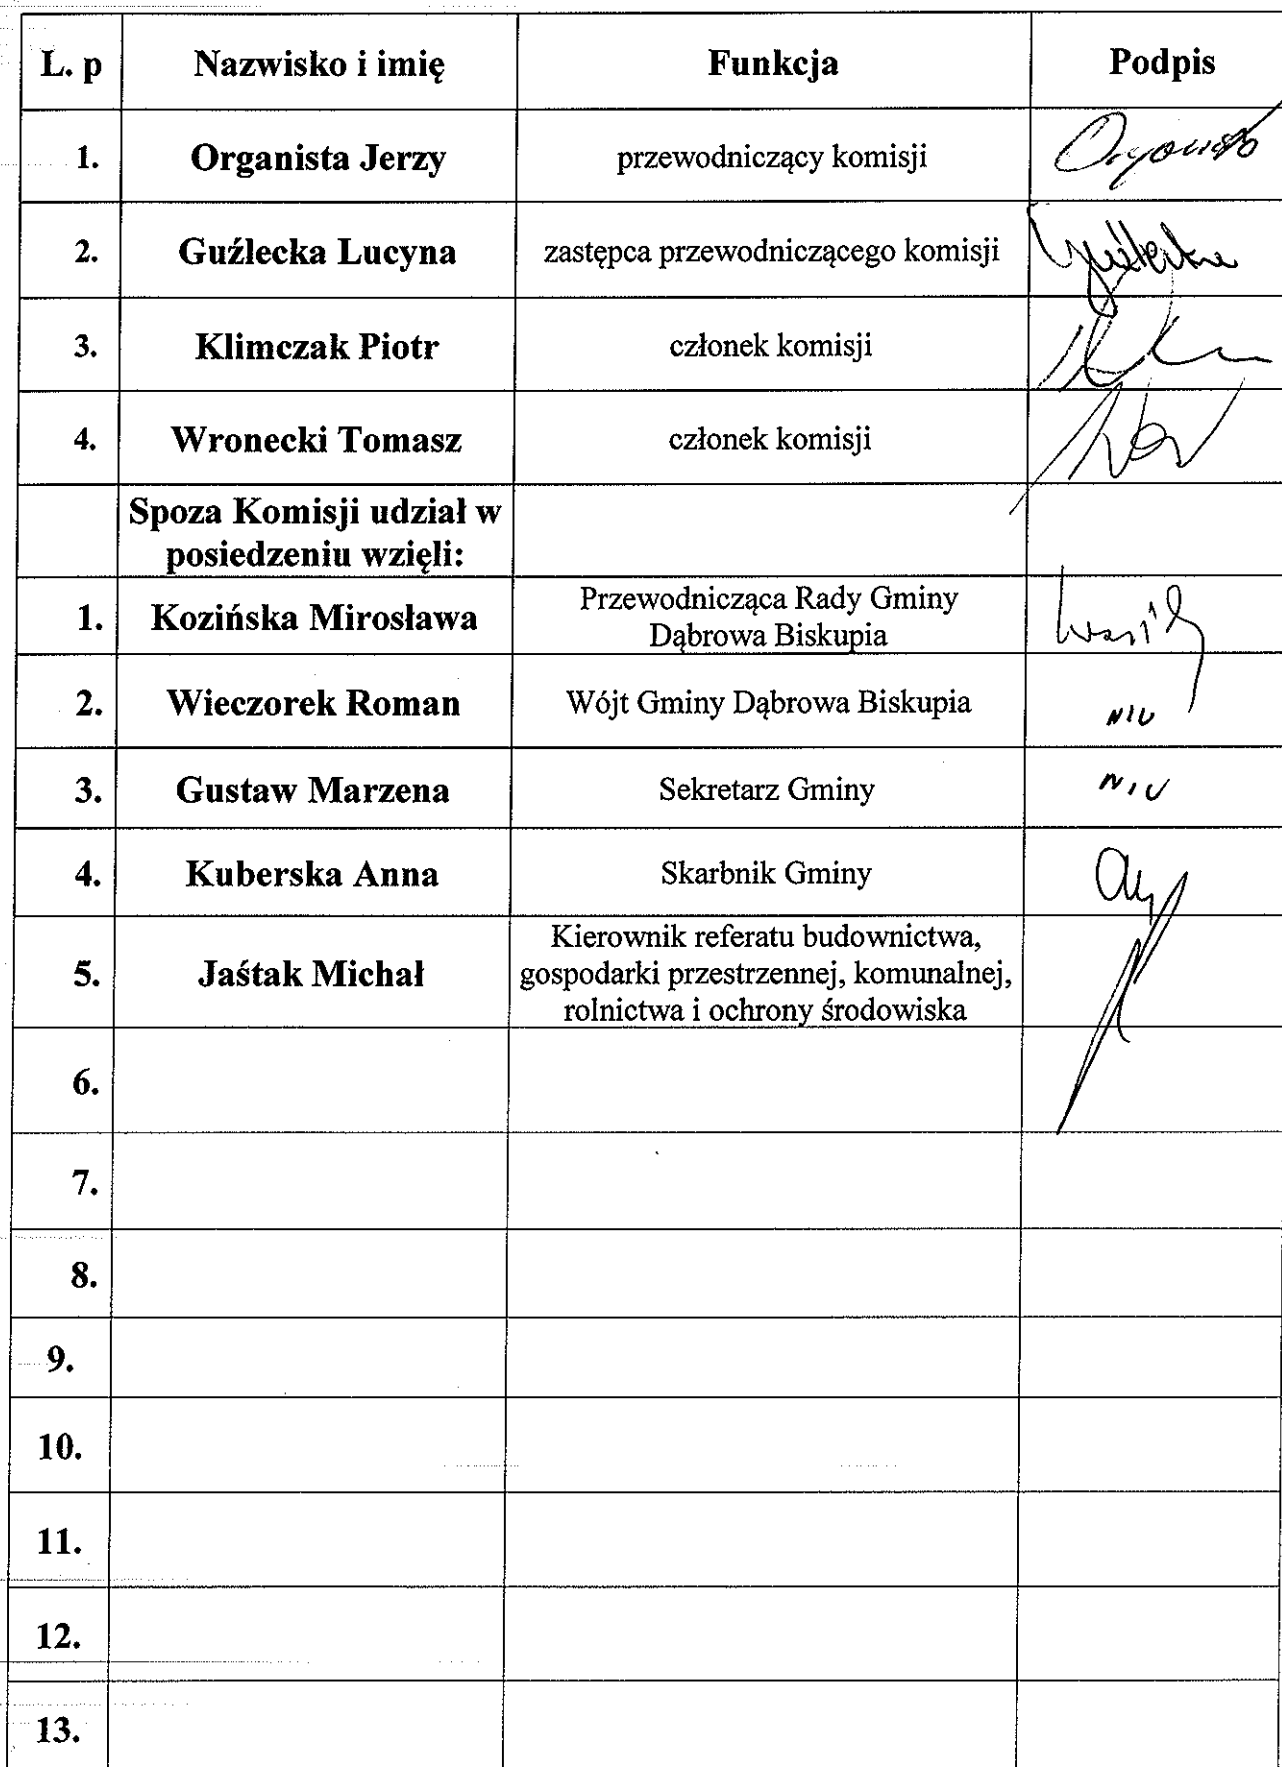 L. p Nazwisko i imię Funkcja Podpis
1. Organista Jerzy przewodniczący komisji
2. Guźlecka Lucyna zastępca przewodniczącego komisji
3. Klimczak Piotr członek komisji
4. Wronecki Tomasz członek komisji
Spoza Komisji udział w
posiedzeniu wzięli:
1. Kozińska Mirosława Przewodnicząca Rady Gminy
Dąbrowa Biskupia
2. Wieczorek Roman Wójt Gminy Dąbrowa Biskupia NIU
3. Gustaw Marzena Sekretarz Gminy NIU
4. Kuberska Anna Skarbnik Gminy
Kierownik referatu budownictwa,
5. Jaśtak Michał gospodarki przestrzennej, komunalnej,
rolnictwa i ochrony środowiska
6.
7.
8.
9.
10.
11.
12.
13.